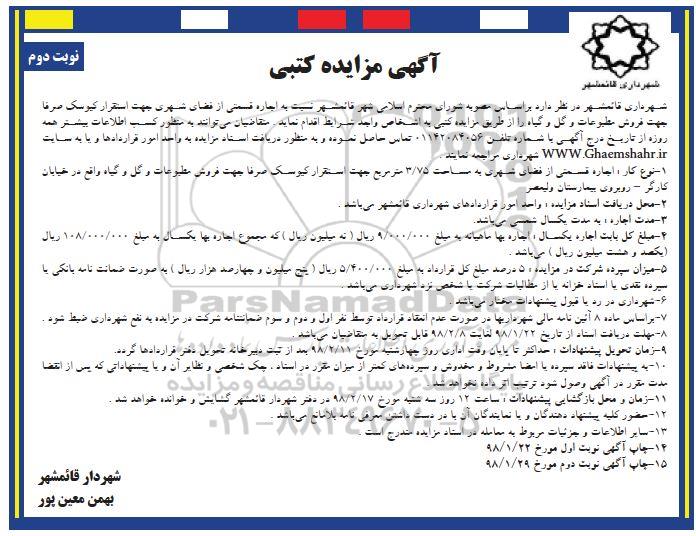 شهرداری قائمشهر
نوبت دوم
آگهی مزایده کتبی
شهرداری قائمشهر در نظر دارد براساس مصوبه شورای محترم اسلامی شهر قائمشهر نسبت به اجاره قسمتی از فضای شهری جهت استقرار کیوسک صرفا
جهت فروش مطبوعات و گل و گیاه را از طریق مزایده کتبی به اشخاص واجد شرایط اقدام نماید . متقاضیان می‌توانند به منظور کسب اطلاعات بیشتر همه
روزه از تاریخ درج آگهی با شماره تلفن ۰۱۱۴۲۰۸۴۰۵۶ تماس حاصل نموده و به منظور دریافت اسناد مزایده به واحد امور قراردادها و یا به سایت
WWW.Ghaemshahr.ir شهرداری مراجعه نمایند .
۱-نوع کار : اجاره قسمتی از فضای شهری به مساحت ۳/۷۵ مترمربع جهت استقرار کیوسک صرفا جهت فروش مطبوعات و گل و گیاه واقع در خیابان
کارگر – روبروی بیمارستان ولیعصر
۲-محل دریافت اسناد مزایده : واحد امور قراردادهای شهرداری قائمشهر می‌باشد .
۳-مدت اجاره : به مدت یکسال شمسی می‌باشد.
۴-مبلغ کل بابت اجاره یکسال : اجاره بها ماهیانه به مبلغ ۹/۰۰۰/۰۰۰ ریال ( نه میلیون ریال ) که مجموع اجاره بها یکسال به مبلغ ۱۰۸/۰۰۰/۰۰۰ ریال
(یکصد و هشت میلیون ریال ) می‌باشد .
۵-میزان سپرده شرکت در مزایده : ۵ درصد مبلغ کل قرارداد به مبلغ ۵/۴۰۰/۰۰۰ ریال ( پنج میلیون و چهارصد هزار ریال ) به صورت ضمانت نامه بانکی یا
سپرده نقدی یا اسناد خزانه یا از مطالبات شرکت یا شخص نزد شهرداری می‌باشد .
۶-شهرداری در رد یا قبول پیشنهادات مختار می‌باشد .
۷-براساس ماده ۸ آئین نامه مالی شهرداریها در صورت عدم انعقاد قرارداد توسط نفر اول و دوم و سوم ضمانتنامه شرکت در مزایده به نفع شهرداری ضبط شود .
۸-مهلت دریافت اسناد از تاریخ ۹۸/۱/۲۲ لغایت ۹۸/۲/۸ قابل تحویل به متقاضیان می‌باشد .
۹-زمان تحویل پیشنهادات : حداکثر تا پایان وقت اداری روز چهارشنبه مورخ ۹۸/۲/۱۱ بعد از ثبت دبیرخانه تحویل دفتر قراردادها گردد.
۱۰-به پیشنهادات فاقد سپرده یا امضا مشروط و مخدوش و سپرده‌های کمتر از میزان مقرر در اسناد ، چک شخصی و نظایر آن و یا پیشنهاداتی که پس از انقضا
مدت مقرر در آگهی وصول شود ترتیب اثر داده نخواهد شد.
۱۱-زمان و محل بازگشایی پیشنهادات : ساعت ۱۲ روز سه شنبه مورخ ۹۸/۲/۱۷ در دفتر شهردار قائمشهر گشایش و خوانده خواهد شد .
۱۲-حضور کلیه پیشنهاد دهندگان و یا نمایندگان آن با در دست داشتن معرفی نامه بلامانع می‌باشد .
۱۳-سایر اطلاعات و جزئیات مربوط به معامله در اسناد مزایده مندرج است .
۱۴-چاپ آگهی نوبت اول مورخ ۹۸/۱/۲۲
۱۵-چاپ آگهی نوبت دوم مورخ ۹۸/۱/۲۹
شهردار قائمشهر
بهمن معین پور
ParsNamadData
پایگاه اطلاع رسانی مناقصه و مزایده
۰۲۱-۸۸۳۴۹۶۷۰-۵